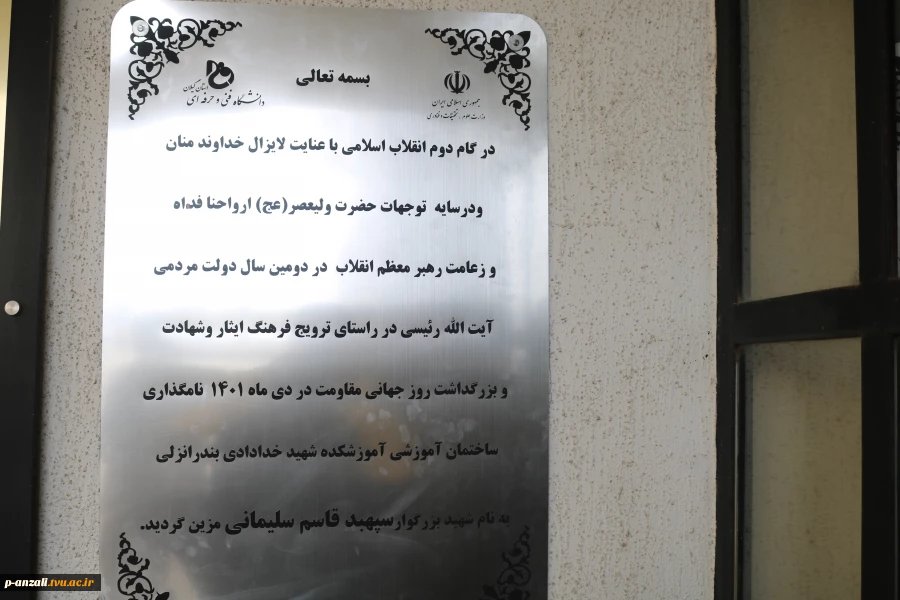 بسمه تعالی
جمهوری اسلامی ایران
وزارت علوم، تحقیقات و فناوری
استان گیلان
دانشگاه فنی و حرفه ای
در گام دوم انقلاب اسلامی با عنایت لایزال خداوند منان
ودرسایه توجهات حضرت ولیعصر(عج) ارواحنا فداه
و زعامت رهبر معظم انقلاب در دومین سال دولت مردمی
آیت الله رئیسی در راستای ترویج فرهنگ ایثار وشهادت
و بزرگداشت روز جهانی مقاومت در دی ماه ۱۴۰۱ نامگذاری
ساختمان آموزشی آموزشکده شهید خدادادی بندرانزلی
به نام شهید بزرگوارسپهبد قاسم سلیمانی مزین گردید.
p-anzali.tvu.ac.ir